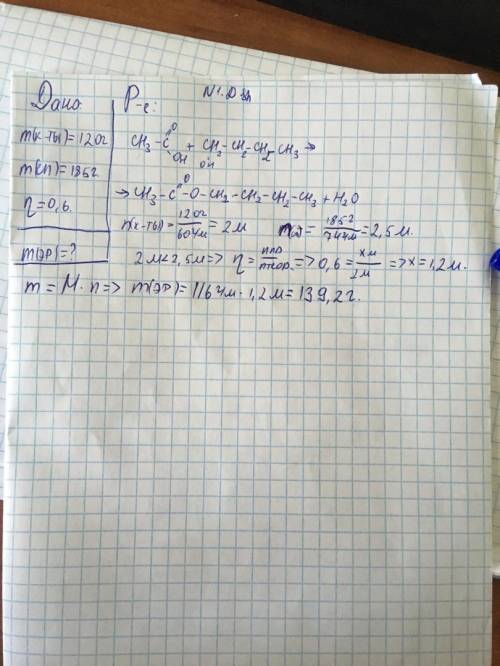 Дано: Р-е: №1. Д
m(к-ты)=120г
m(сп)=185г
η=0,6.
m(эр)=?
CH3-C=O OH + CH2-CH2-CH2-CH3 → OH
→ CH3-C=O-O-CH2-CH2-CH2-CH3 + H2O
n(к-ты)= 120г/60г/м = 2м n( )= 185г/74г/м = 2,5м.
2м<2,5м=> η = nпр/nтеор. => 0,6 = xм/2м => x=1,2м.
m = M·n => m(эр)=116г/м·1,2м=139,2г.